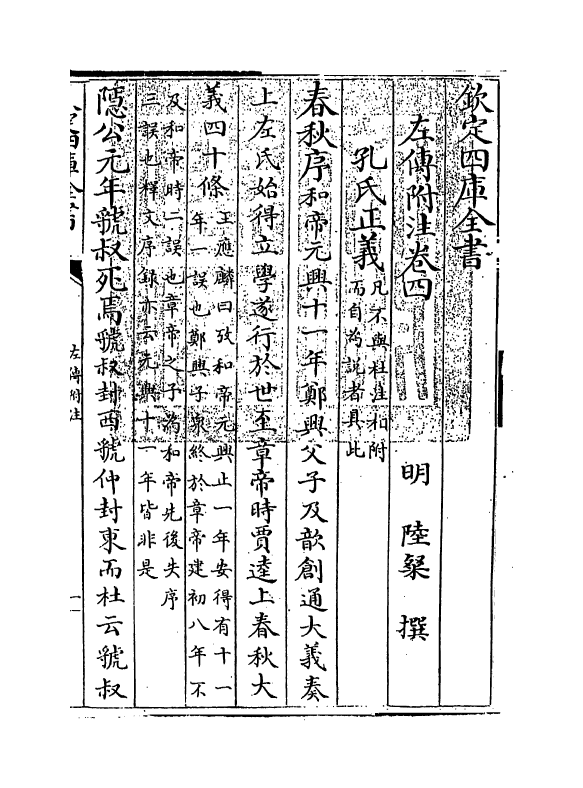 欽定四庫全書
左傳附注卷四
明 陸粲 撰
孔氏正義凡不與杜注相附
而自為説者具此
春秋序和帝元興十一年鄭興父子及歆創通大義奏
上左氏始得立學遂行於世至章帝時賈逵上春秋大
義四十條王應麟曰攷和帝元興止一年安得有十一
年一誤也鄭興子衆終於章帝建初八年不
及和帝時二誤也章帝之子為和帝先後失序
三誤也釋文序録亦云元興十一年皆非是
隱公元年虢叔死焉虢叔封西虢仲封東而杜云虢叔
欽定四庫全書
左傳附注
一